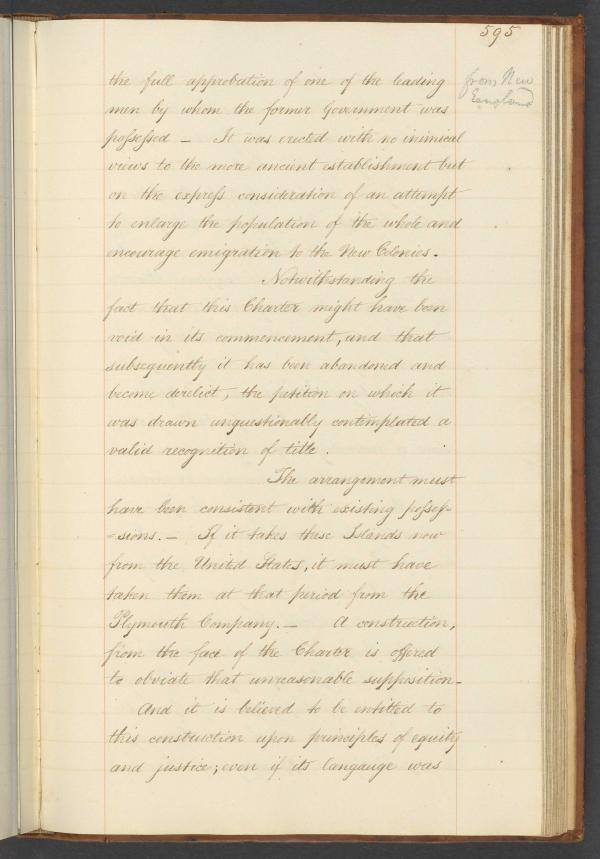 595
from New
England
the full approbation of one of the leading
men by whom the former Government was
possessed – It was erected with no inimical
views to the more ancient establishment but
on the express consideration of an attempt
to enlarge the population of the whole and
encourage emigration to the New Colonies.
Notwithstanding the
fact that this Charter might have been
void in its commencement, and that
subsequently it has been abandoned and
become derelict, the petition on which it
was drawn unquestionably contemplated a
valid recognition of title.
The arrangement must
have been consistent with existing posses-
-sions. – If it takes these Islands now
from the United States, it must have
taken them at that period from the
Plymouth Company. – A construction,
from the face of the Charter is offered
to obviate that unreasonable supposition –
And it is believed to be entitled to
this construction upon principles of equity
and justice; even if its langauge was